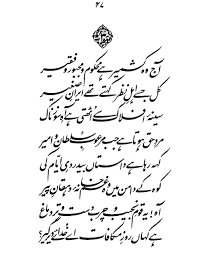 ۴۷
آج وہ کشمیر ہے محکوم و مجبور و فقیر
کل جسے اہلِ نظر کہتے تھے ایرانِ صغیر
سینۂ افلاک سے اٹھتی ہے آہِ سوز ناک
مردِ حق ہوتا ہے جب مرعوبِ سلطان و امیر
کہہ رہا ہے داستاں بیدردیِ ایام کی
کوہ کے دامن میں وہ غم خانۂ دہقانِ پیر
آہ! یہ قومِ نجیب و چرب دست و تر دماغ
ہے کہاں روزِ مکافات اے خدائے دیر گیر؟